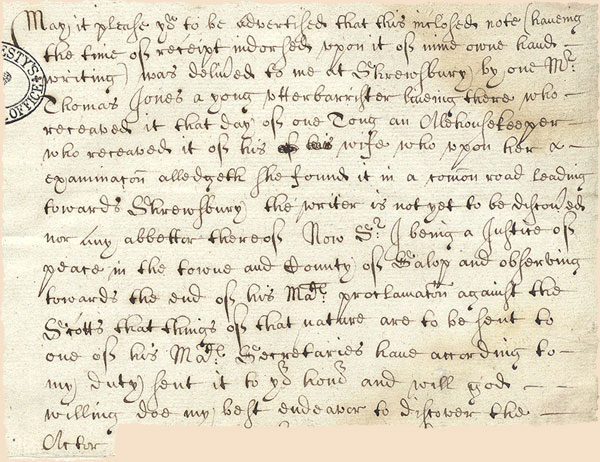 May it please yor to be advertised that this inclosed note (haueing
the time of receipt indorsed vpon it of mine owne hand
writing) was deliued to me at Shrewsbury by one Mr.
Thomas Jones a yong vtterbarrister liueing there who
receaved it that day of one Tong an Alehousekeeper
who receaved it of his wife who vpon her
examinacon alledgeth she found it in a comon road leading
towards Shrewsbury the writer is not yet to be discoued
nor any abbettor thereof Now Sr. I being a Justice of
peace in the towne and County of Salop and observing
towards the end of his Mats. proclamacon against the
Scotts that things of that nature are to be sent to
one of his Mats. Secretaries haue according to
my duty sent it to yor honor and will god
willing doe my best endeavor to discover the
Actor
STY'S
OFFICE